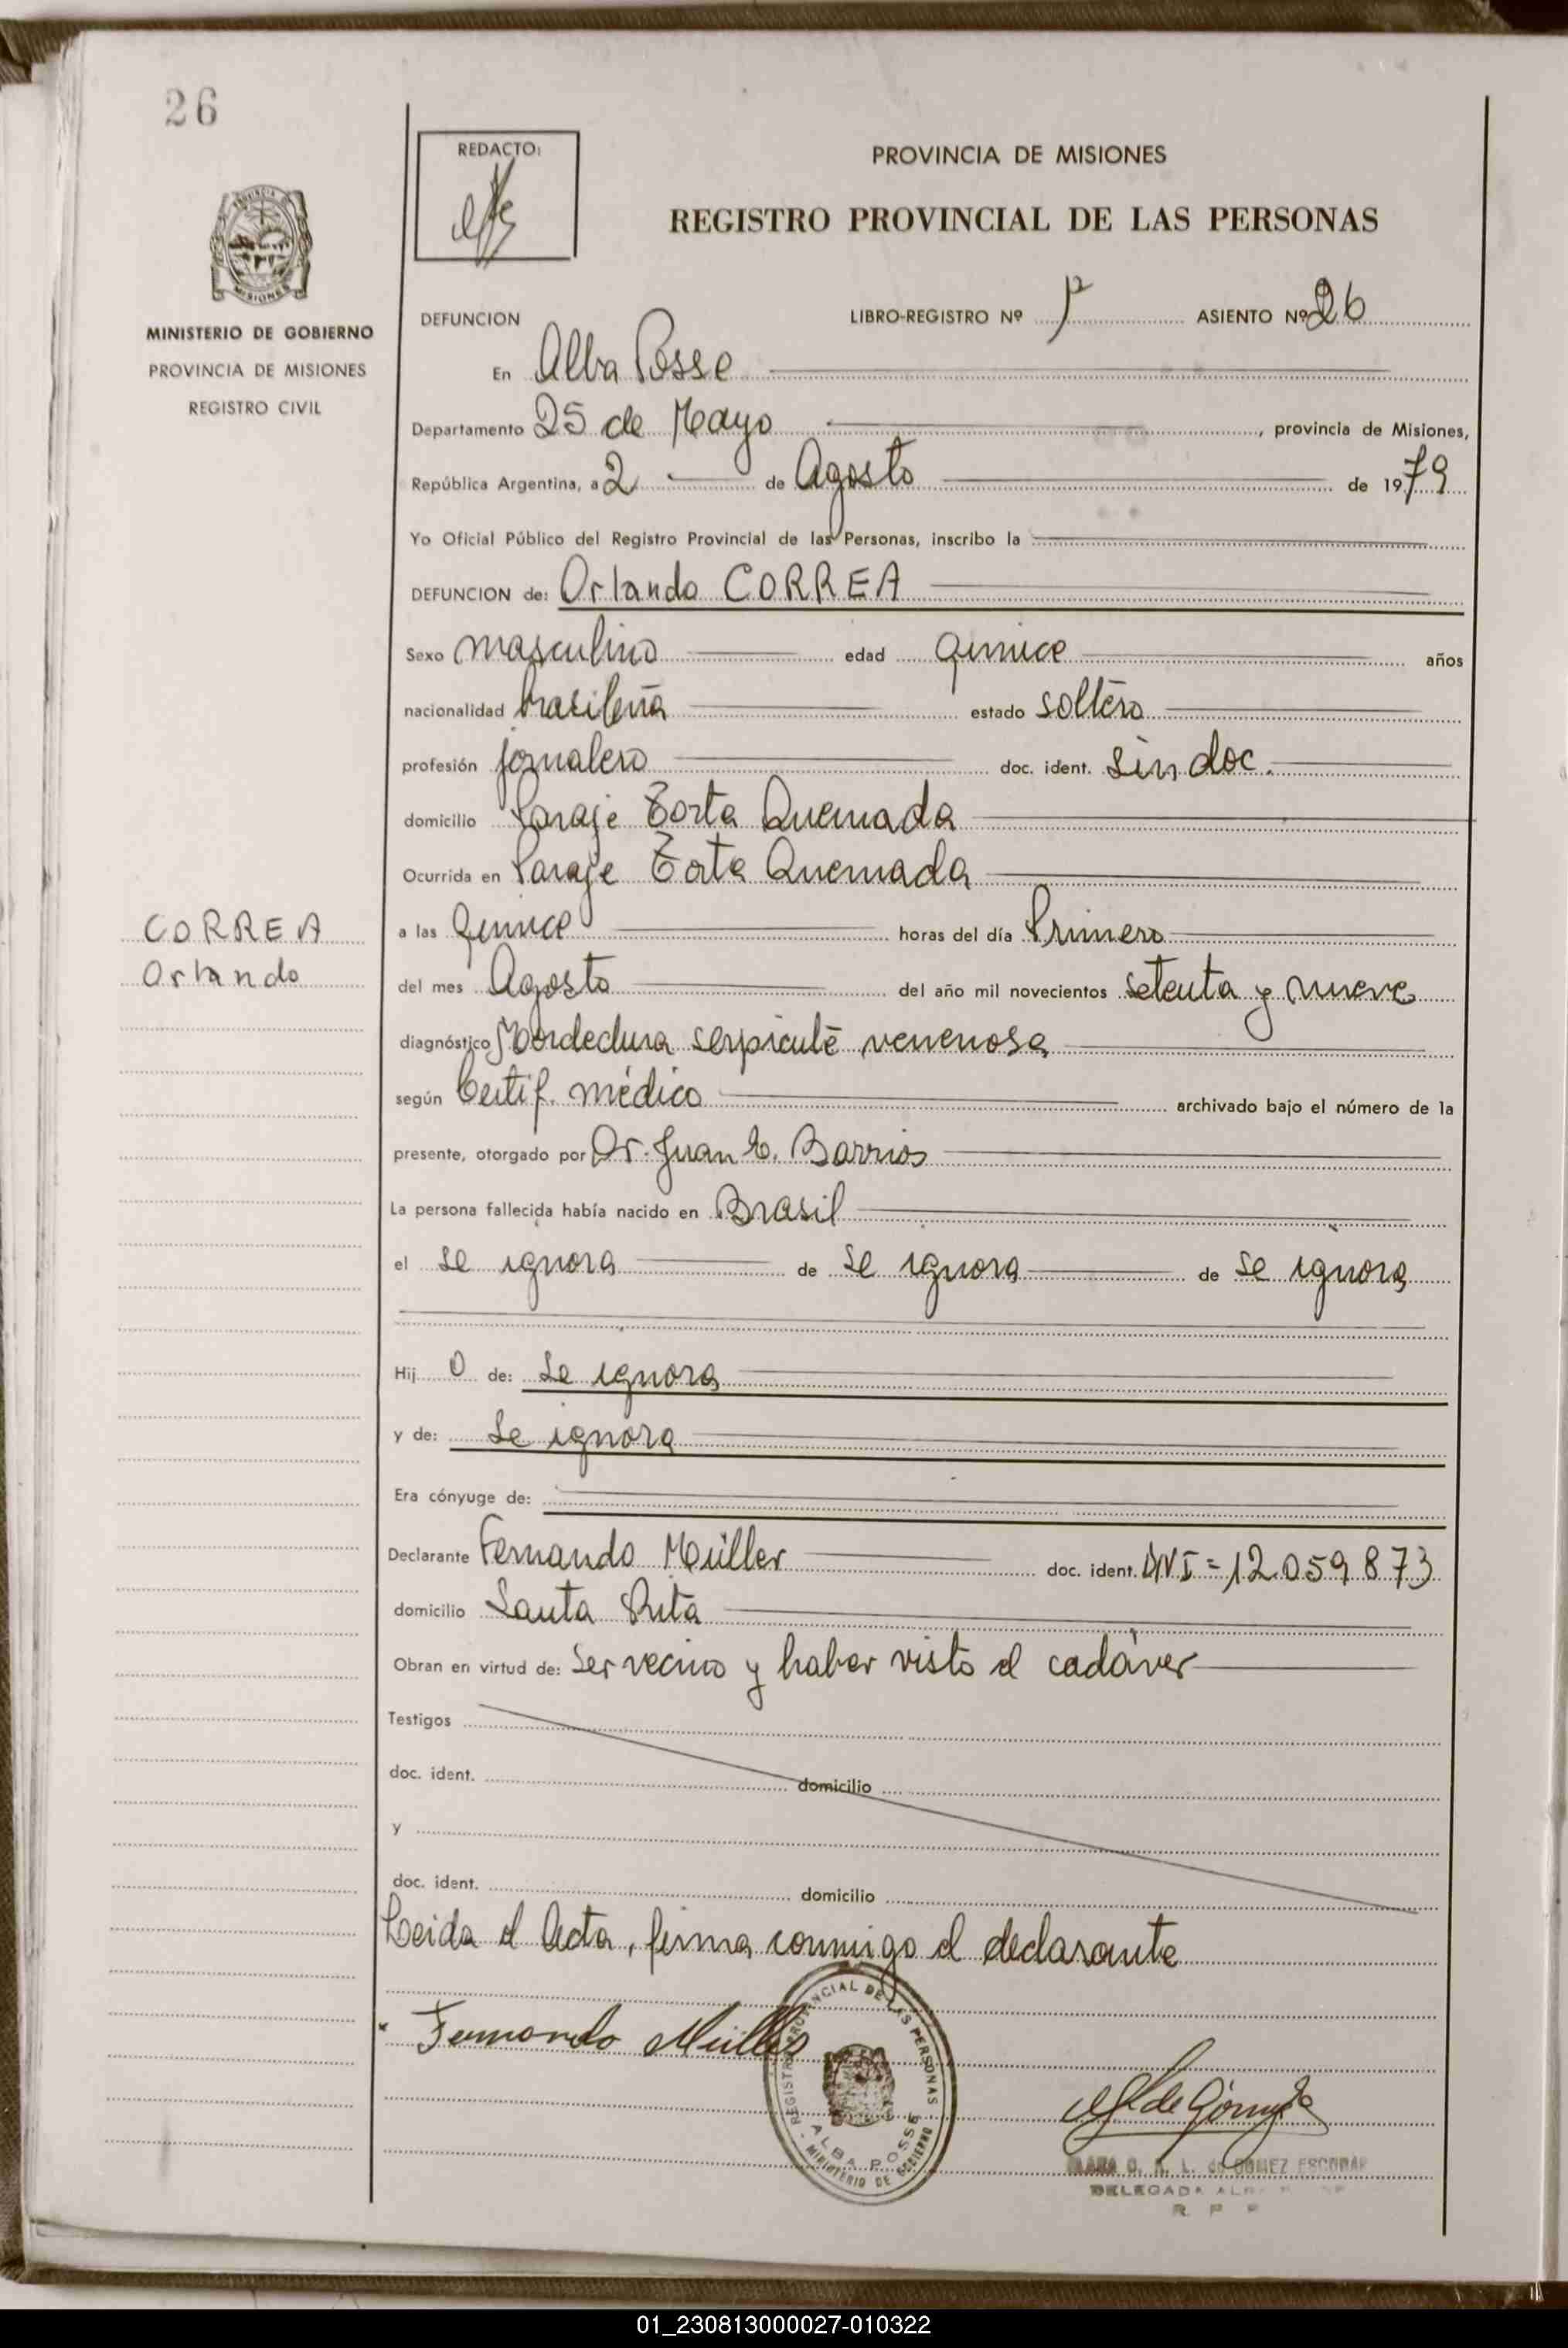 26
REDACTO:
PROVINCIA DE MISIONES
REGISTRO PROVINCIAL DE LAS PERSONAS
MINISTERIO DE GOBIERNO
PROVINCIA DE MISIONES
REGISTRO CIVIL
DEFUNCION LIBRO-REGISTRO Nº 1º ASIENTO Nº 26
En Alba Posse
Departamento 25 de Mayo, provincia de Misiones,
República Argentina, a 2 de Agosto de 1979
Yo Oficial Público del Registro Provincial de las Personas, inscribo la
DEFUNCION de: Orlando CORREA
Sexo masculino edad quince años
nacionalidad brasileña estado soltero
profesión jornalero doc. ident. sin doc.
domicilio Paraje Torta Quemada
Ocurrida en Paraje Torta Quemada
CORREA
Orlando
a las quince horas del día Primero
del mes Agosto del año mil novecientos setenta y nueve
diagnóstico Mordedura serpiente venenosa
según Certif. médico archivado bajo el número de la
presente, otorgado por Dr. Juan E. Barrios
La persona fallecida había nacido en Brasil
el se ignora de se ignora de se ignora
Hij o de: se ignora
y de: se ignora
Era cónyuge de:
Declarante Fernando Müller doc. ident. DNI = 12.059.873
domicilio Santa Rita
Obran en virtud de: Ser vecino y haber visto el cadáver
Testigos
doc. ident. domicilio
y
doc. ident. domicilio
Leida el Acta, firma conmigo el declarante
Fernando Müller
REGISTRO PROVINCIAL DE LAS PERSONAS
ALBA POSSE
MINISTERIO DE GOBIERNO
L. de GOMEZ ESCOBAR
DELEGADA
R. P. P.
01_230813000027-010322